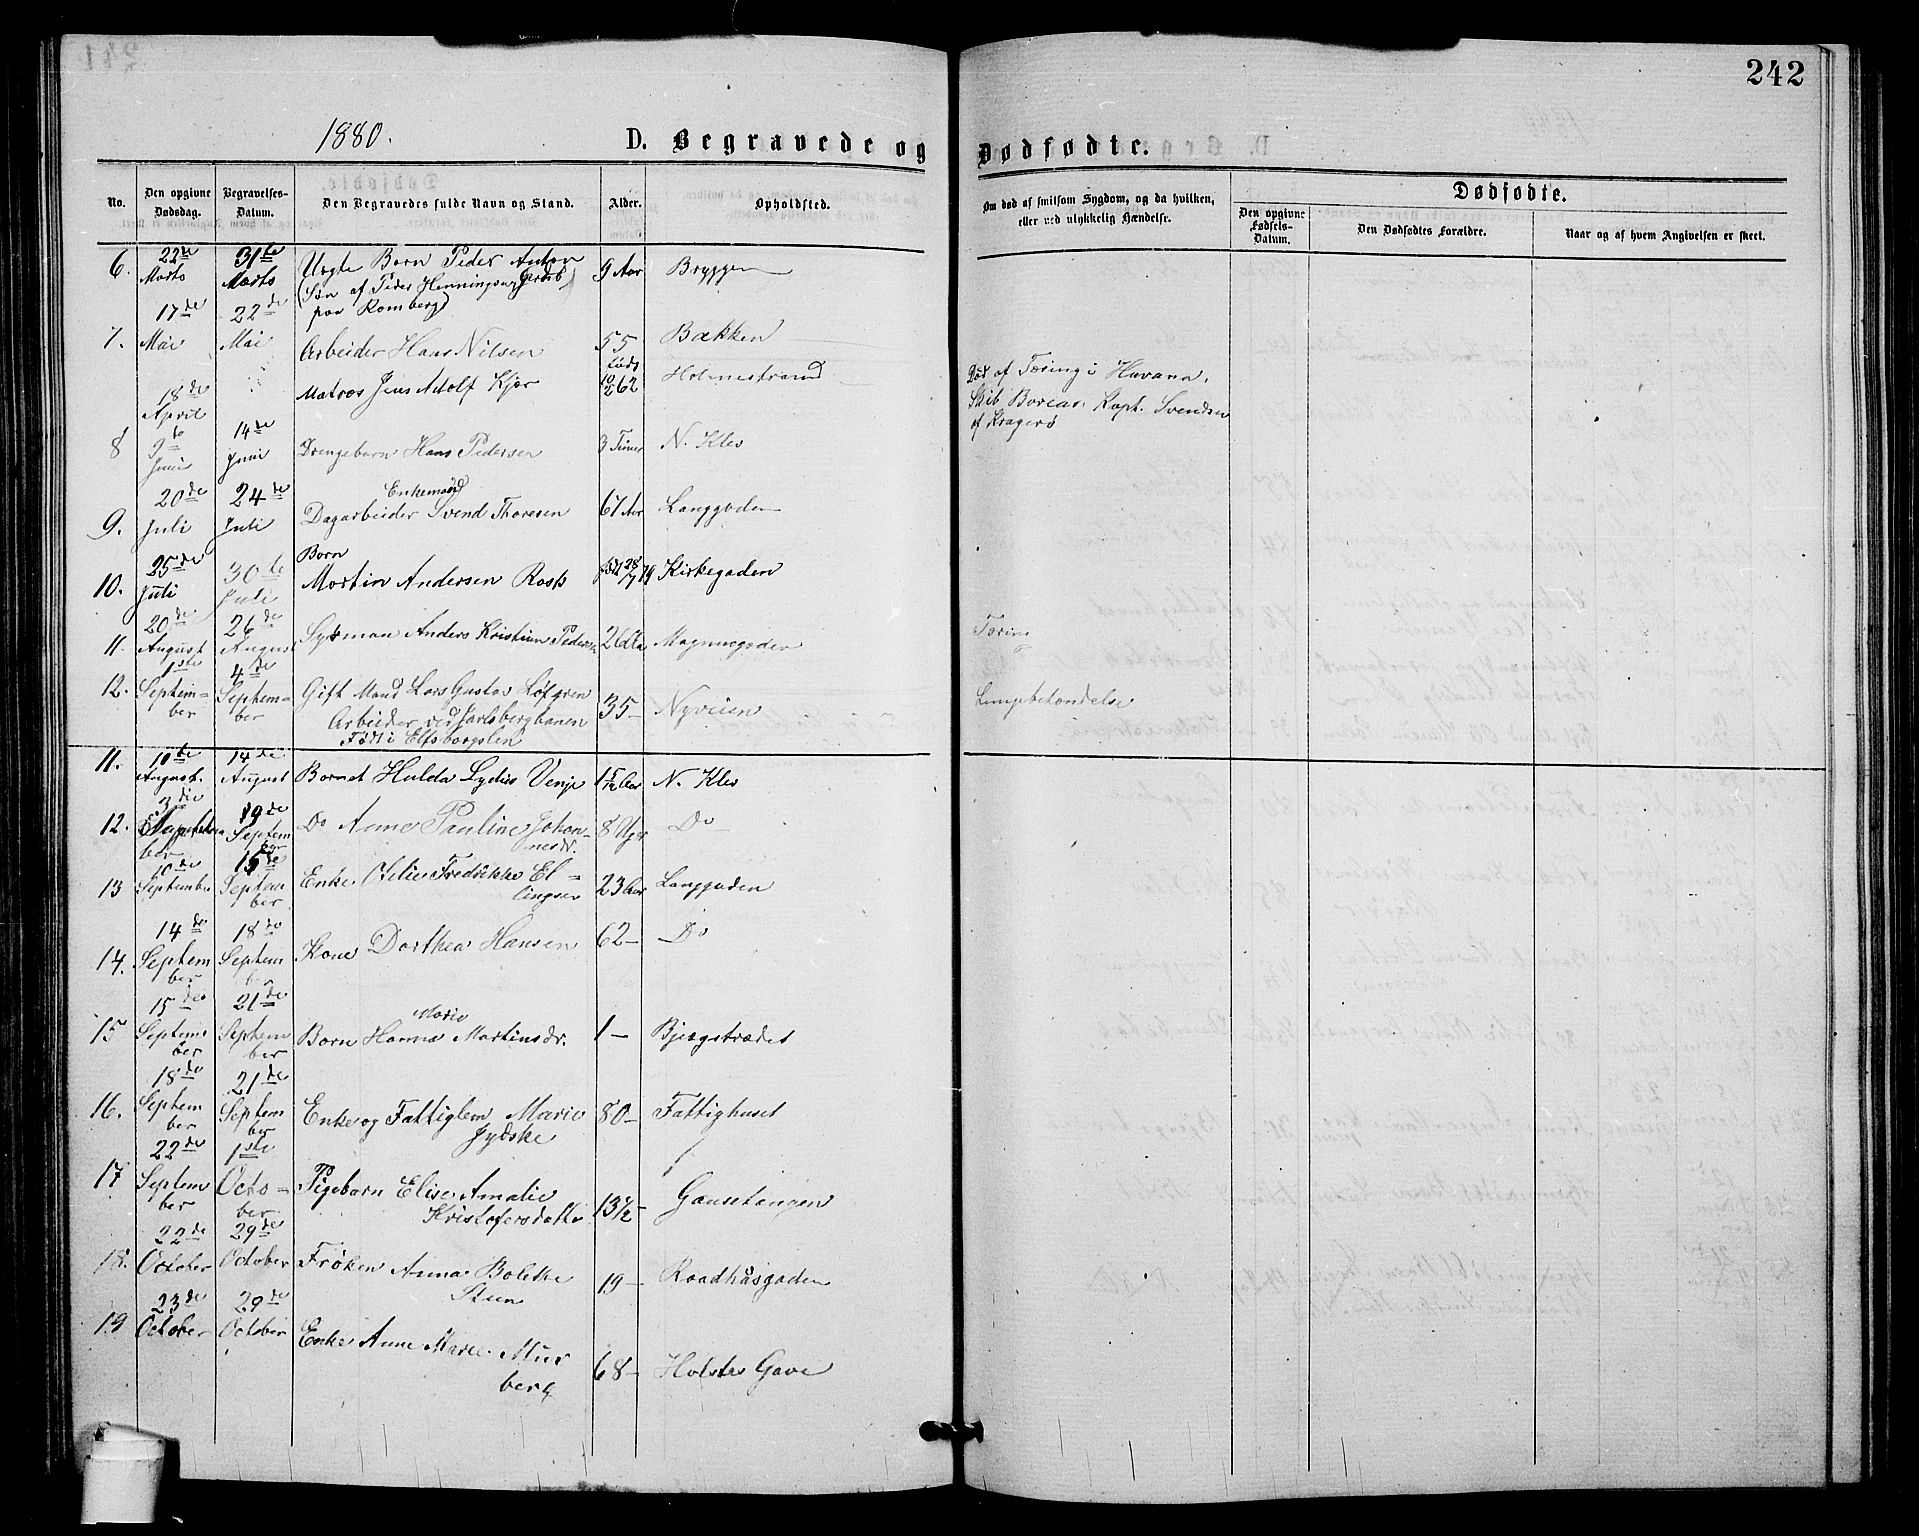 242
1880.
D. Begravede og Dødfødte.
No.
Den opgivne Dødsdag.
Begravelses-Datum.
Den Begravedes fulde Navn og Stand.
Alder.
Opholdssted.
Om død af smitsom Sygdom, og da hvilken, eller ved ulykkelig Hændelse.
Dødfødte.
Den opgivne Fødsels-Datum.
Den Dødfødtes Forældre.
Naar og af hvem Angivelsen er skeet.
6. 22de Marts 31te Marts Uægte Barn Peder Anton 9 Aar Bryggen
(Søn af Peder Henningsen
paa Romberg)
7. 17de Mai 22de Mai Arbeider Hans Nilsen 55 Bækken
18de April Matros Jens Adolf Kjær født 10/2 62 Holmestrand Død af Tæring i Havana.
Skib Boreas. Kapt. Svendsen
af Kragerø
8 9de Juni 14de Juni Drengebarn Hans Pedersen 3 Timer N. Klev
Enkemand
9. 20de Juli 24de Juli Dagarbeider Svend Thoresen 67 Aar Langgaden
Barn
10. 25de Juli 30te Juli Martin Andersen Rosk født 28/7 79 Kirkegaden
11. 20de August 26de August Anders Kristian Pedersen 26 Aar Tæring
12. 1ste Septem=ber 4de Septem=ber Gift Mand Lars Gustav Løfgren 35 — Nyveien Lungebetændelse
Arbeider ved Jarlsbergbanen
Født i Elfsborgslen
11. 10de August. 14de August Barnet Hulda Lydia 1 5/12 Aar N. Klev
12. 3die September 19de September Do Anne Pauline Johan=nesdr. 8 Uger Do
13 10de September 15de September Enke Otelie Fredrikke El=lingsen 23 Aar Langgaden
14. 14de September 18de September Kone Dorthea Hansen 62 — Do
Marie
15 15de September 21de September Barn Hanna Martinsdr. 1 — Bjergstrædet
16. 18de September 21de September Enke og Fattiglem Marie Jydske 80 — Fattighuset
17 22de September 1ste Octo=ber Pigebarn Elise Amalie Kristofersdatter 13 1/2 — Gausetangen
18. 22de October 29de October Frøken Anna Bolethe Steen 19 — Raadhusgaden
19 23de October 29de October Enke Anne Marie Murberg 68 — Holstes Gave